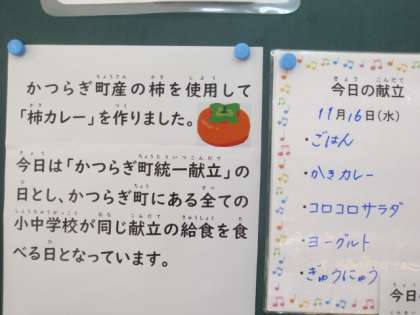 かつらぎ町産の柿を使用して
「柿カレー」を作りました。
今日は「かつらぎ町統一献立」の
日とし、かつらぎ町にある全ての
小中学校が同じ献立の給食を食
べる日となっています。
今日の献立
11月16日(水)
・ごはん
・かきカレー
・コロコロサラダ
・ヨーグルト
・ぎゅうにゅう
今日